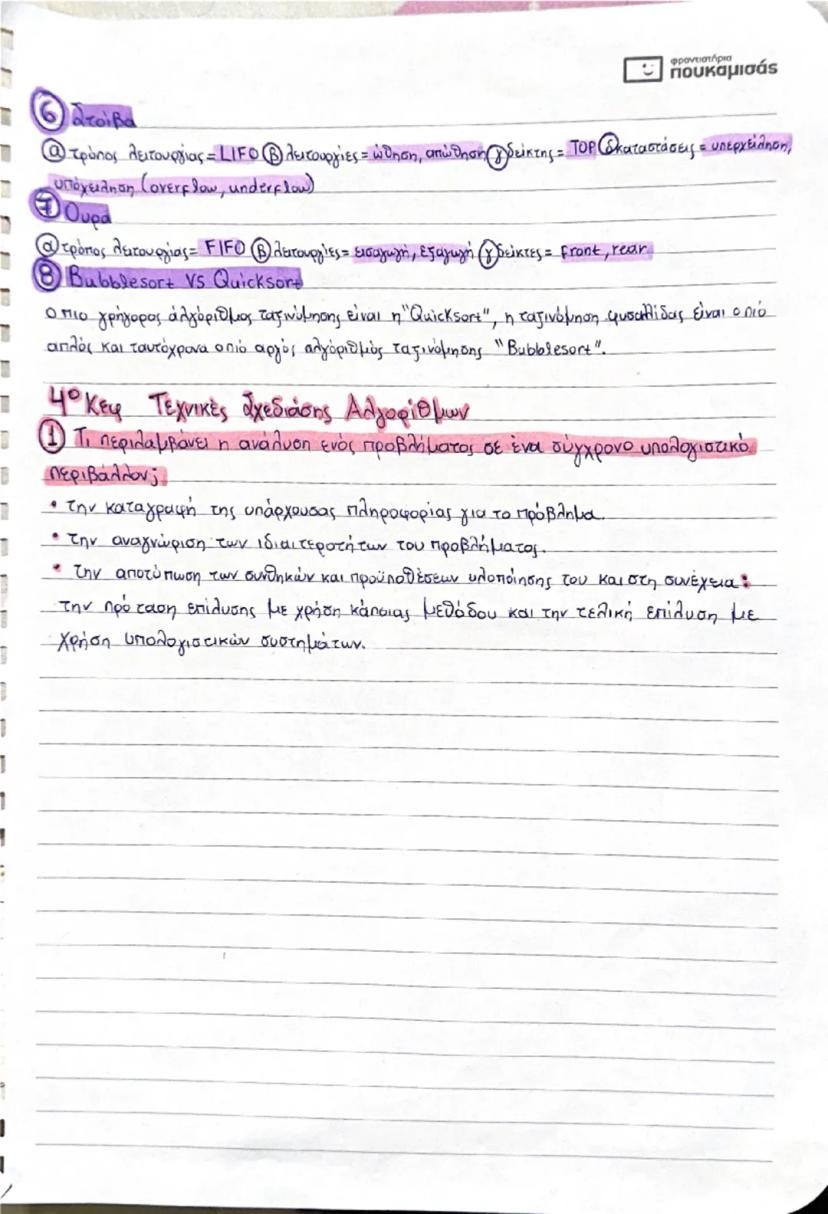 φροντιστήρια
πουκαμισάς
6 Στοίβα
α τρόπος λειτουργίας = LIFO β λειτουργίες = ώθηση, απώθηση γ δείκτης = TOP δ καταστάσεις = υπερχείληση,
υποχείληση (overflow, underflow)
7 Ουρά
α τρόπος λειτουργίας = FIFO β λειτουργίες = εισαγωγή, εξαγωγή γ δείκτες = front, rear
8 Bubblesort VS Quicksort
Ο πιο γρήγορος αλγόριθμος ταξινόμησης είναι η "Quicksort", η ταξινόμηση φυσαλίδας είναι ο πιό
απλός και ταυτόχρονα ο πιό αργός αλγόριθμός ταξινόμησης "Bubblesort".
4º Κεφ Τεχνικές Σχεδιάσης Αλγορίθμων
1 Τι περιλαμβάνει η ανάλυση ενός προβλήματος σε ένα σύγχρονο υπολογιστικό
περιβάλλον;
• την καταγραφή της υπάρχουσας πληροφορίας για το πρόβλημα.
• την αναγνώριση των ιδιαιτεροτήτων του προβλήματος.
• την αποτύπωση των συνθηκών και προϋποθέσεων υλοποίησης του και στη συνέχεια:
την πρόταση επίλυσης με χρήση κάποιας μεθόδου και την τελική επίλυση με
χρήση υπολογιστικών συστημάτων.